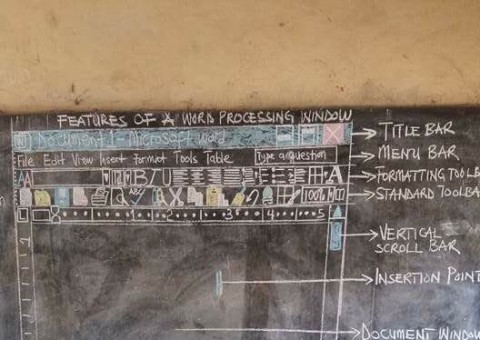 FEATURES OF A WORD PROCESSING WINDOW
Document 1 - Microsoft word
TITLE BAR
File Edit View Insert format Tools Table
Type a question
MENU BAR
AA
B I U
A
FORMATTING TOOLB
ABC
100%
STANDARD TOOLBA
VERTICAL
SCROLL BAR
INSERTION POINT
DOCUMENT WINDOW